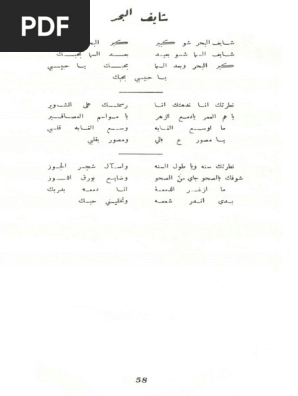 PDF
شايف البحر
شايف البحر شو كبير كبر البحر
شايف السما شو بعيد بعد السما بحبك
كبر البحر وبعد السما بحبك يا حبيبي
يا حبيبي بحبك
نطرتك انا ندهتك انا رسمتك على المشاوير
يا هم العمر يا دمع الزهر يا مواسم العصافير
ما اوسع الغابه وسع الغابه قلبي
يا مصور ع بابي ومصور بقلبي
نطرتك سنه ويا طول السنه واسأل شجر الجوز
شوفك بالصحو جاي من الصحو وضايع بورق اللوز
ما ازغر الدمعة انا دمعه بدربك
بدي اندر شمعه وتخليني حبك
58